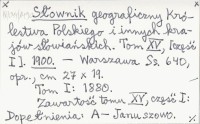 Słownik geograficzny Kró-
lestwa Polskiego i innych kra-
jów słowiańskich. Tom XV, [część
I]. 1900. – Warszawa Ss. 640,
opr., cm 27 x 19.
Tom I: 1880.
Zawartość tomu XV, część I:
Dopełnienia: A – Januszowo.